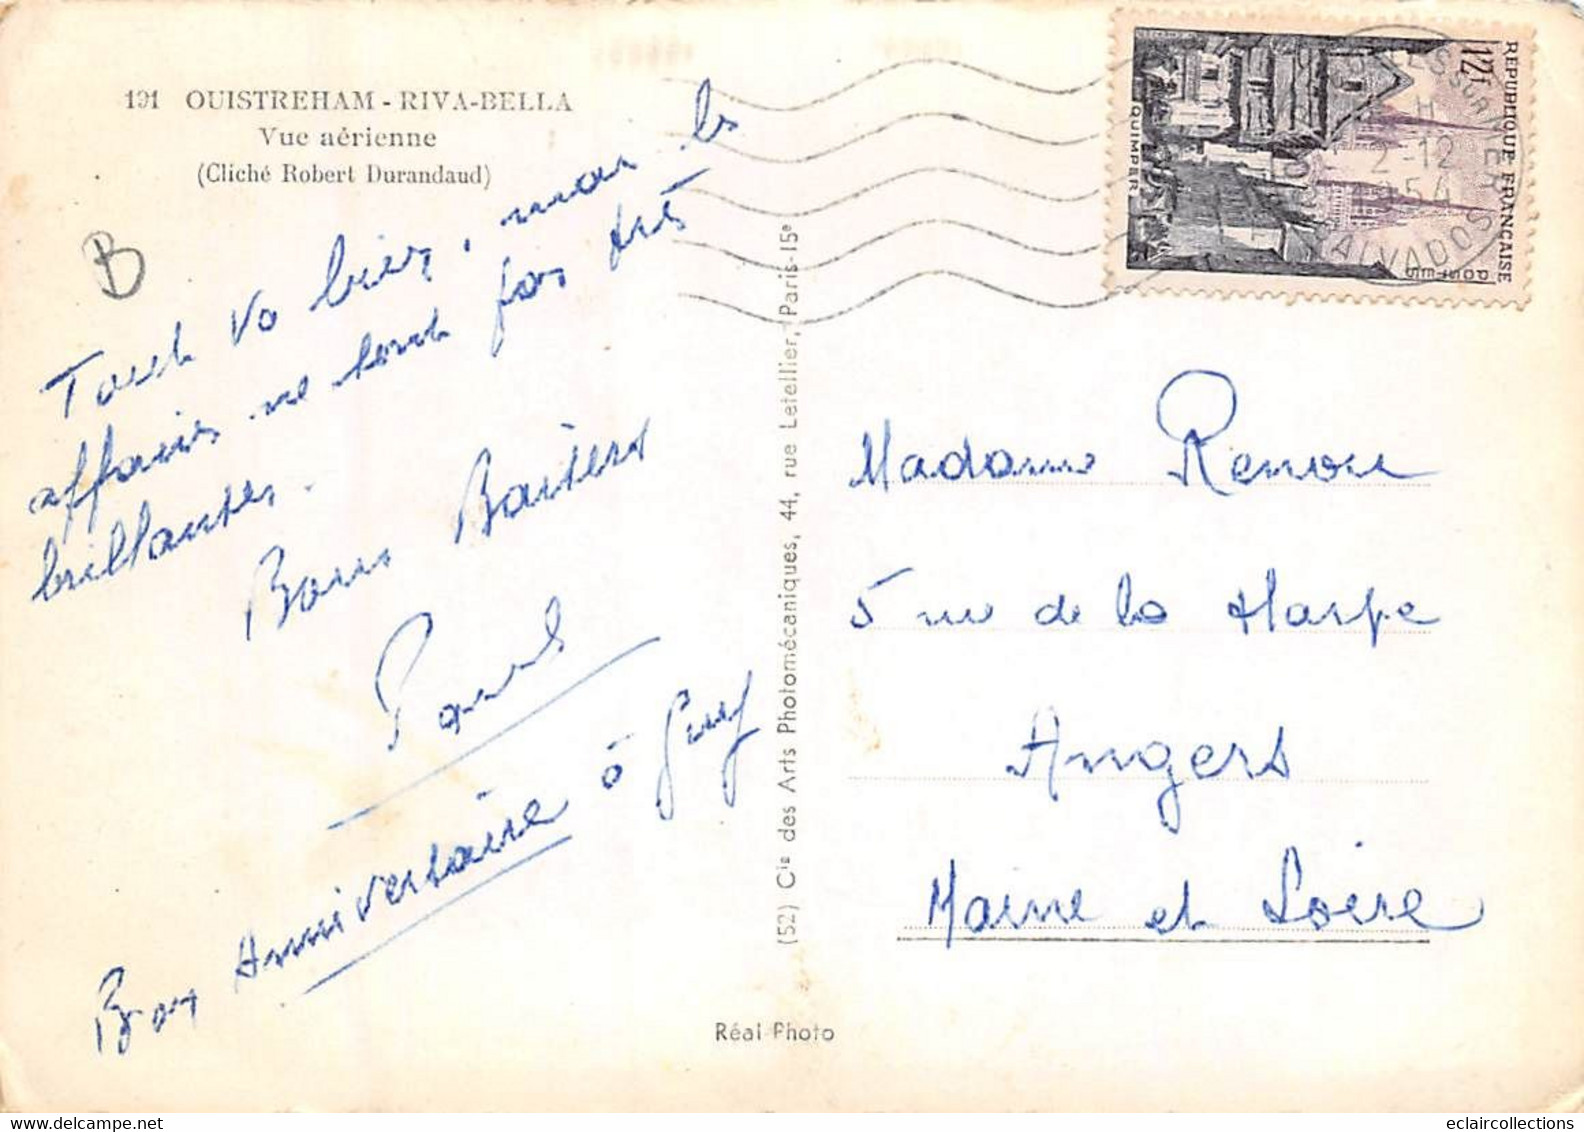 191 OUISTREHAM - RIVA-BELLA
Vue aérienne
(Cliché Robert Durandaud)
B
Tout va bien, mais les
affaires ne sont pas très
brillantes.
Bons Baisers
Paul
Bon Anniversaire à Guy
(52) Cie des Arts Photomécaniques, 44, rue Letellier, Paris-15e
Réal-Photo
REPUBLIQUE FRANÇAISE
12F
QUIMPER
POSTES
2-12
54
CALVADOS
Madame Renou
5 rue de la Harpe
Angers
Maine et Loire
eclaircollections